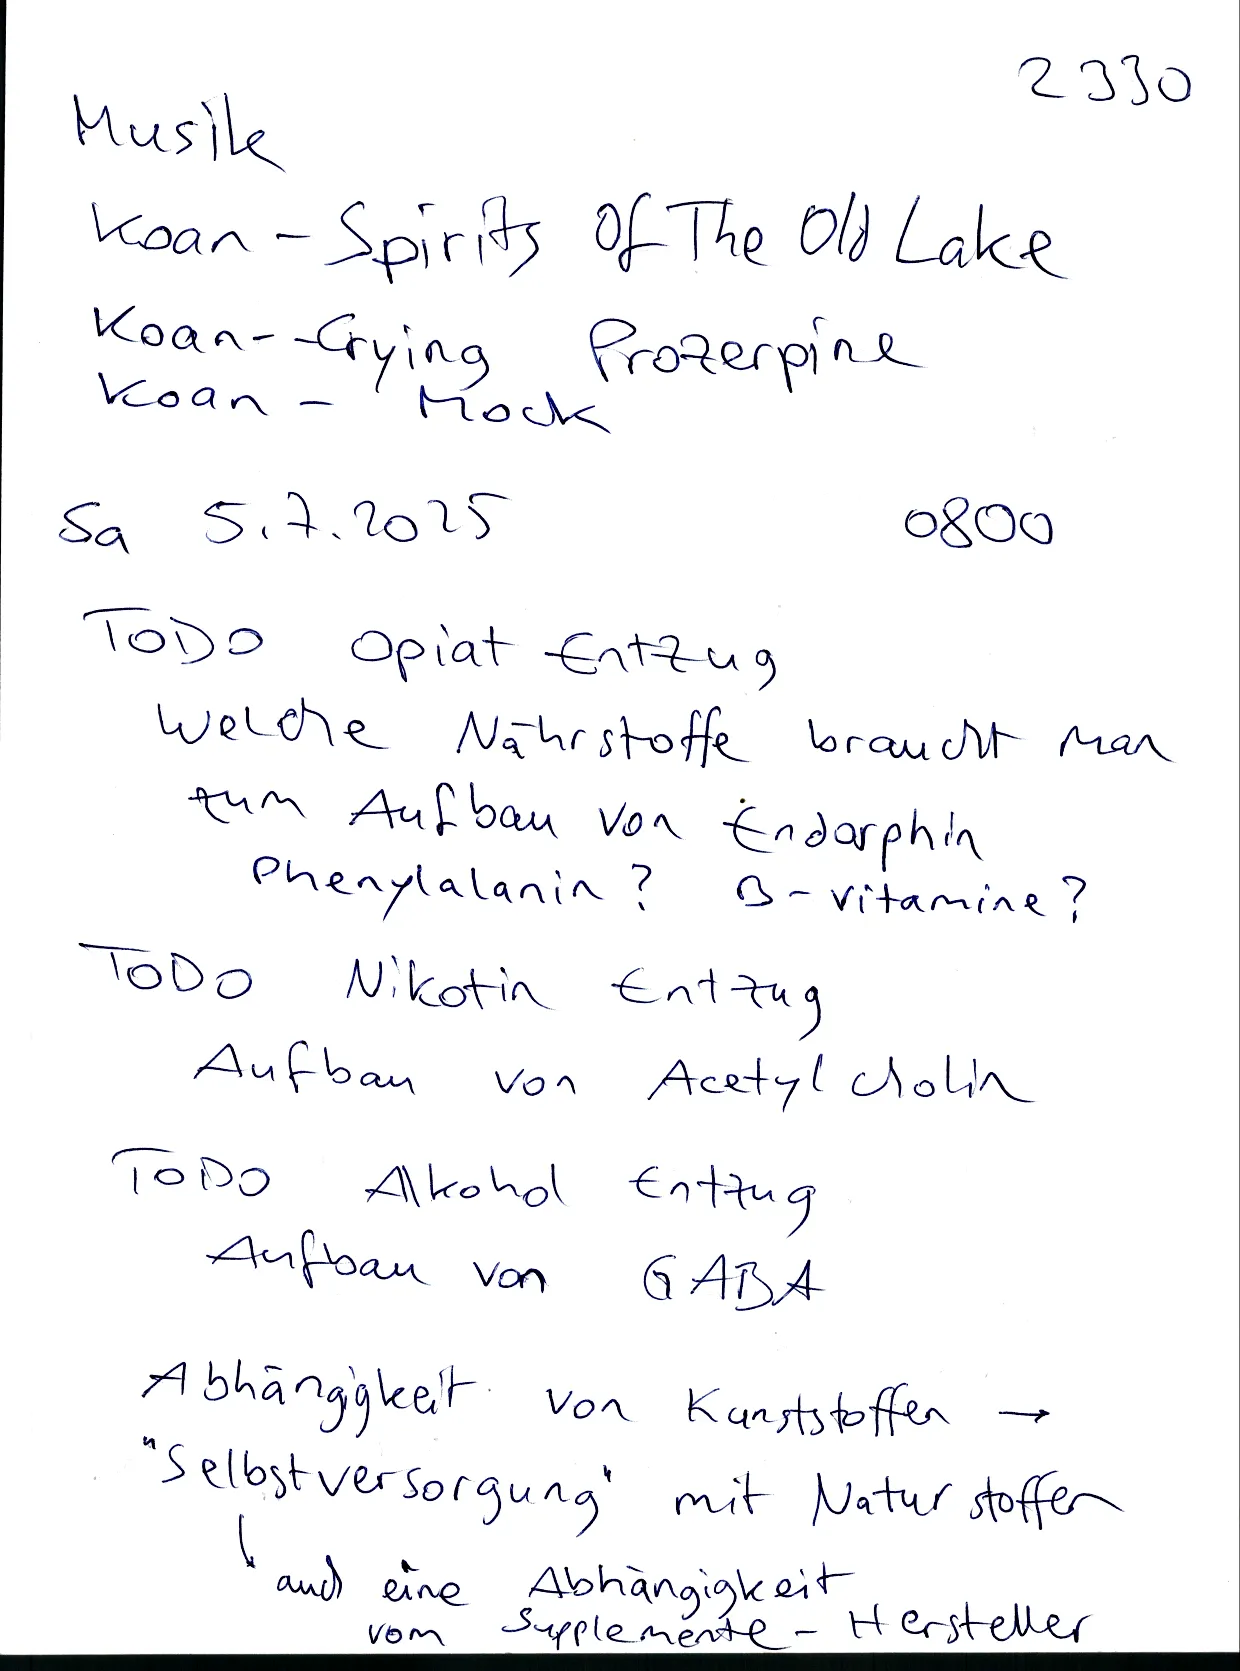 2330
Musik
Koan - Spirits Of The Old Lake
Koan - Crying Prozerpine
Koan - Mock
Sa 5.7.2025 0800
TODO Opiat Entzug
Welche Nährstoffe braucht man
zum Aufbau von Endorphin
Phenylalanin? B-Vitamine?
TODO Nikotin Entzug
Aufbau von Acetylcholin
TODO Alkohol Entzug
Aufbau von GABA
Abhängigkeit von Kunststoffen →
"Selbstversorgung" mit Naturstoffen
auch eine Abhängigkeit
vom Supplemente-Hersteller